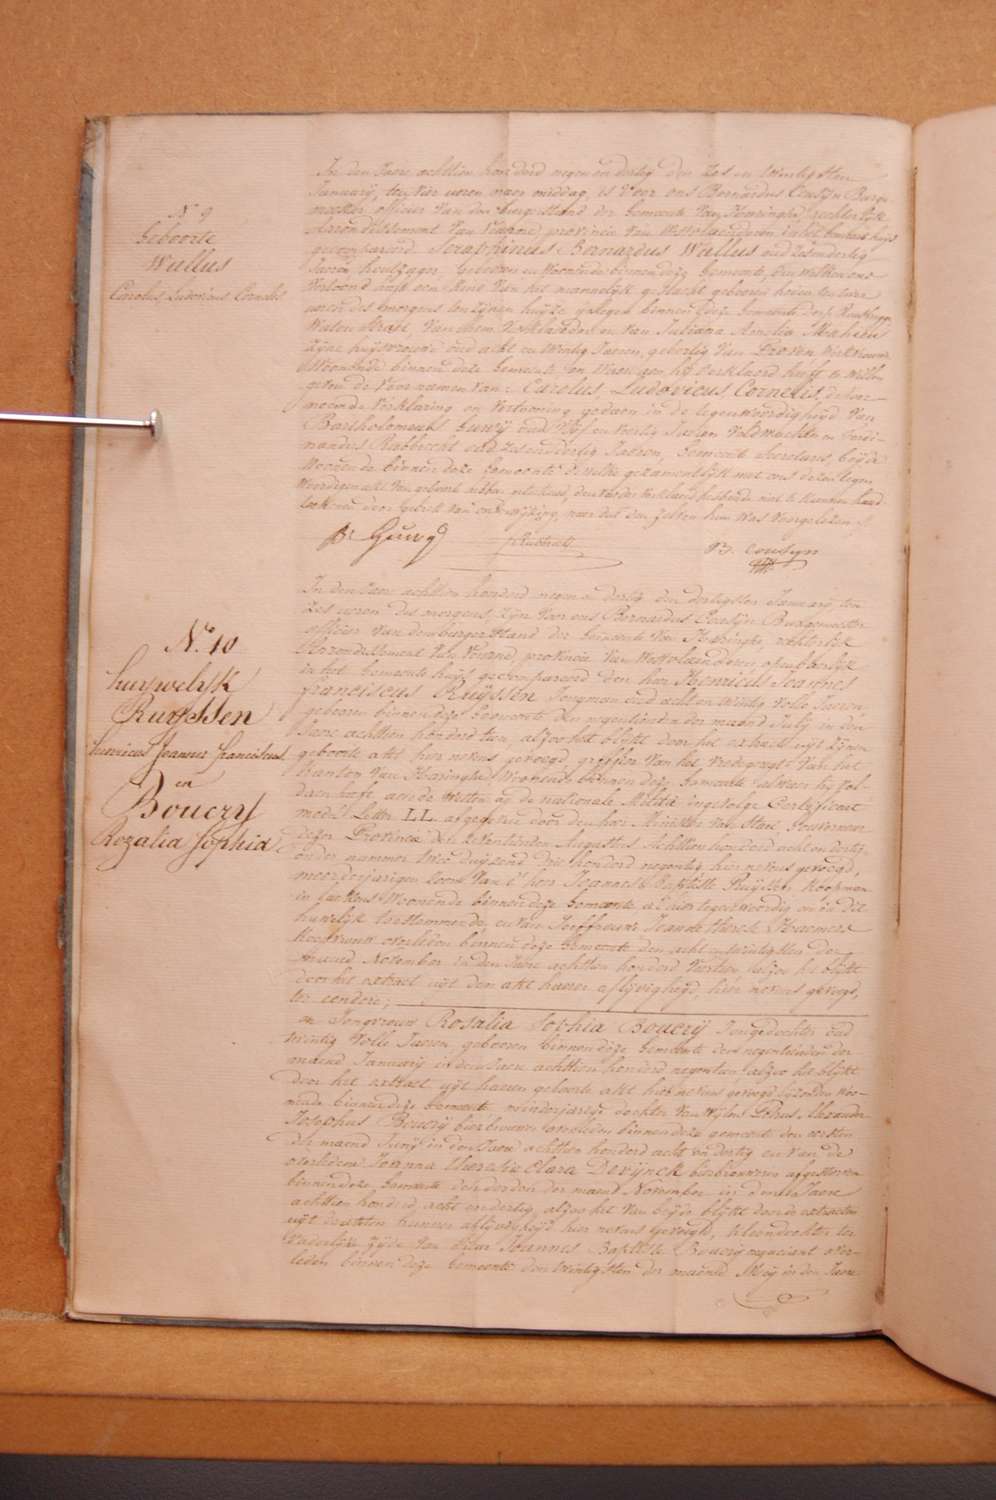 N.º 9
Geboorte
Wullus
Carolus Ludovicus Cornelis
In den Jaere achttien honderd negen en dertig den zes en twintigsten
January, ten vier ueren naer middag, is voor ons Bernardus Couseyn Burge
meester officier van den burgerstand der Gemeente van Haringhe, rechterlyk
Arrondissement van Veurne, provincie van Westvlaenderen in het Gemeente huys
gecompareerd Seraphinus Bernardus Wullus oud zes en dertig
Jaeren houtzager Gebooren en woonende binnen deze Gemeente, den welken ons
vertoond heeft een kind van het mannelyk geslacht gebooren heden ten twee
ueren des morgens ten zynen huyze gelegen binnen deze gemeente dorp Rousbrugge
Straet, van hem verklaerder en van Juliana Amelia Mahieu
zyne huysvrouwe oud acht en twintig Jaeren, geboortig van Proven
woonende binnen deze Gemeente en waer aen hy verklaerd heeft te willen
geven de voornamen van: Carolus, Ludovicus, Cornelis, de voor-
noemde verklaring en vertooning gedaen in de tegenwoordigheyd van
Bartholomeus Guwy oud en veertig Jaeren veldwachter en Ferdi-
nandus Rabbrecht oud zes en dertig Jaeren, Gemeente Secretaris, beyde
woonende binnen deze Gemeente & welke gezamentlyk met ons dezen tegen
woordigen akt van geboorte hebben geteekend, den verklaerder niet te kunnen hand
teekenen door gebrek van onderwyzing, naer dat den zelven hun was voorgelezen
B. Guwy
B. Couseyn
N.º 10
huywelyk
Ruyssen
henricus Joannes franciscus
en
Boucry
Rozalia Sophia
In den Jaere achttien honderd negen en dertig den dertigsten January, ten
zes ueren des morgens, zyn voor ons Bernardus Couseyn Burgemeester
officier van den burgerstand der Gemeente van Haringhe, rechterlyk
Arrondissement van Veurne, provincie van Westvlaenderen, openbaerlyk
in het Gemeente huys gecompareerd den heer Henricus Joannes
franciscus Ruyssen Jongman oud acht en twintig volle Jaeren
gebooren binnen deze Gemeente den negentienden der maend July in den
Jaere achttien honderd tien, alzoo het blykt door het extract uyt zynen
geboorte akt hier nevens gevoegd, greffier van het vredegeregt van het
kanton van Haringhe, woonende binnen deze Gemeente, alwaer hy vol-
daen heeft aen de wetten op de nationale Militie ingevolge Certificaet
model Letter LL afgegeven door den heer Minister van Staet, Gouverneur
dezer Provincie den zeventienden Augustus achttien honderd acht en dertig
onder nummer twee duyzend drie honderd negentig hier nevens gevoegd,
meerderjarigen zoon van d'heer Joannes Baptiste Ruyssen Koopman
in woonende binnen deze Gemeente alhier tegenwoordig en in dit
huwelyk toestemmende, en van Jouffrouwe Jeanne Therese Haemers
Koopvrouw overleden binnen deze Gemeente den acht en twintigsten der
maend November in den Jaere achttien honderd veertien, alzoo het blykt
door het extract uyt den akt haerer aflyvigheyd, hier nevens gevoegd,
ter eendere;
en Jongvrouw Rosalia Sophia Boucry Jongedochter oud
twintig volle Jaeren, gebooren binnen deze Gemeente den negentienden der
maend January in den Jaere achttien honderd negentien, alzoo het blykt
door het extract uyt haeren geboorte akt hier nevens gevoegd, byzonder woo-
nende binnen deze Gemeente minderjarige dochter van wylent Alexander
Josephus Boucry bierbrouwer overleden binnen deze gemeente den eersten
der maend Juny in den Jaere achttien honderd acht en dertig en van de
overledene Joanna Theresia Clara Devynck bierbrouwerin afgestorven
binnen deze Gemeente den derden der maend November in den Jaere
achttien honderd acht en dertig, alzoo het van beyde blykt door de extracten
uyt de akten hunner aflyvigheyd hier nevens gevoegd, kleyndochter ter
vaderlyke zyde van Joannes Baptiste Boucry negociant over-
leden binnen deze Gemeente den twintigsten der maend Mey in den Jaere